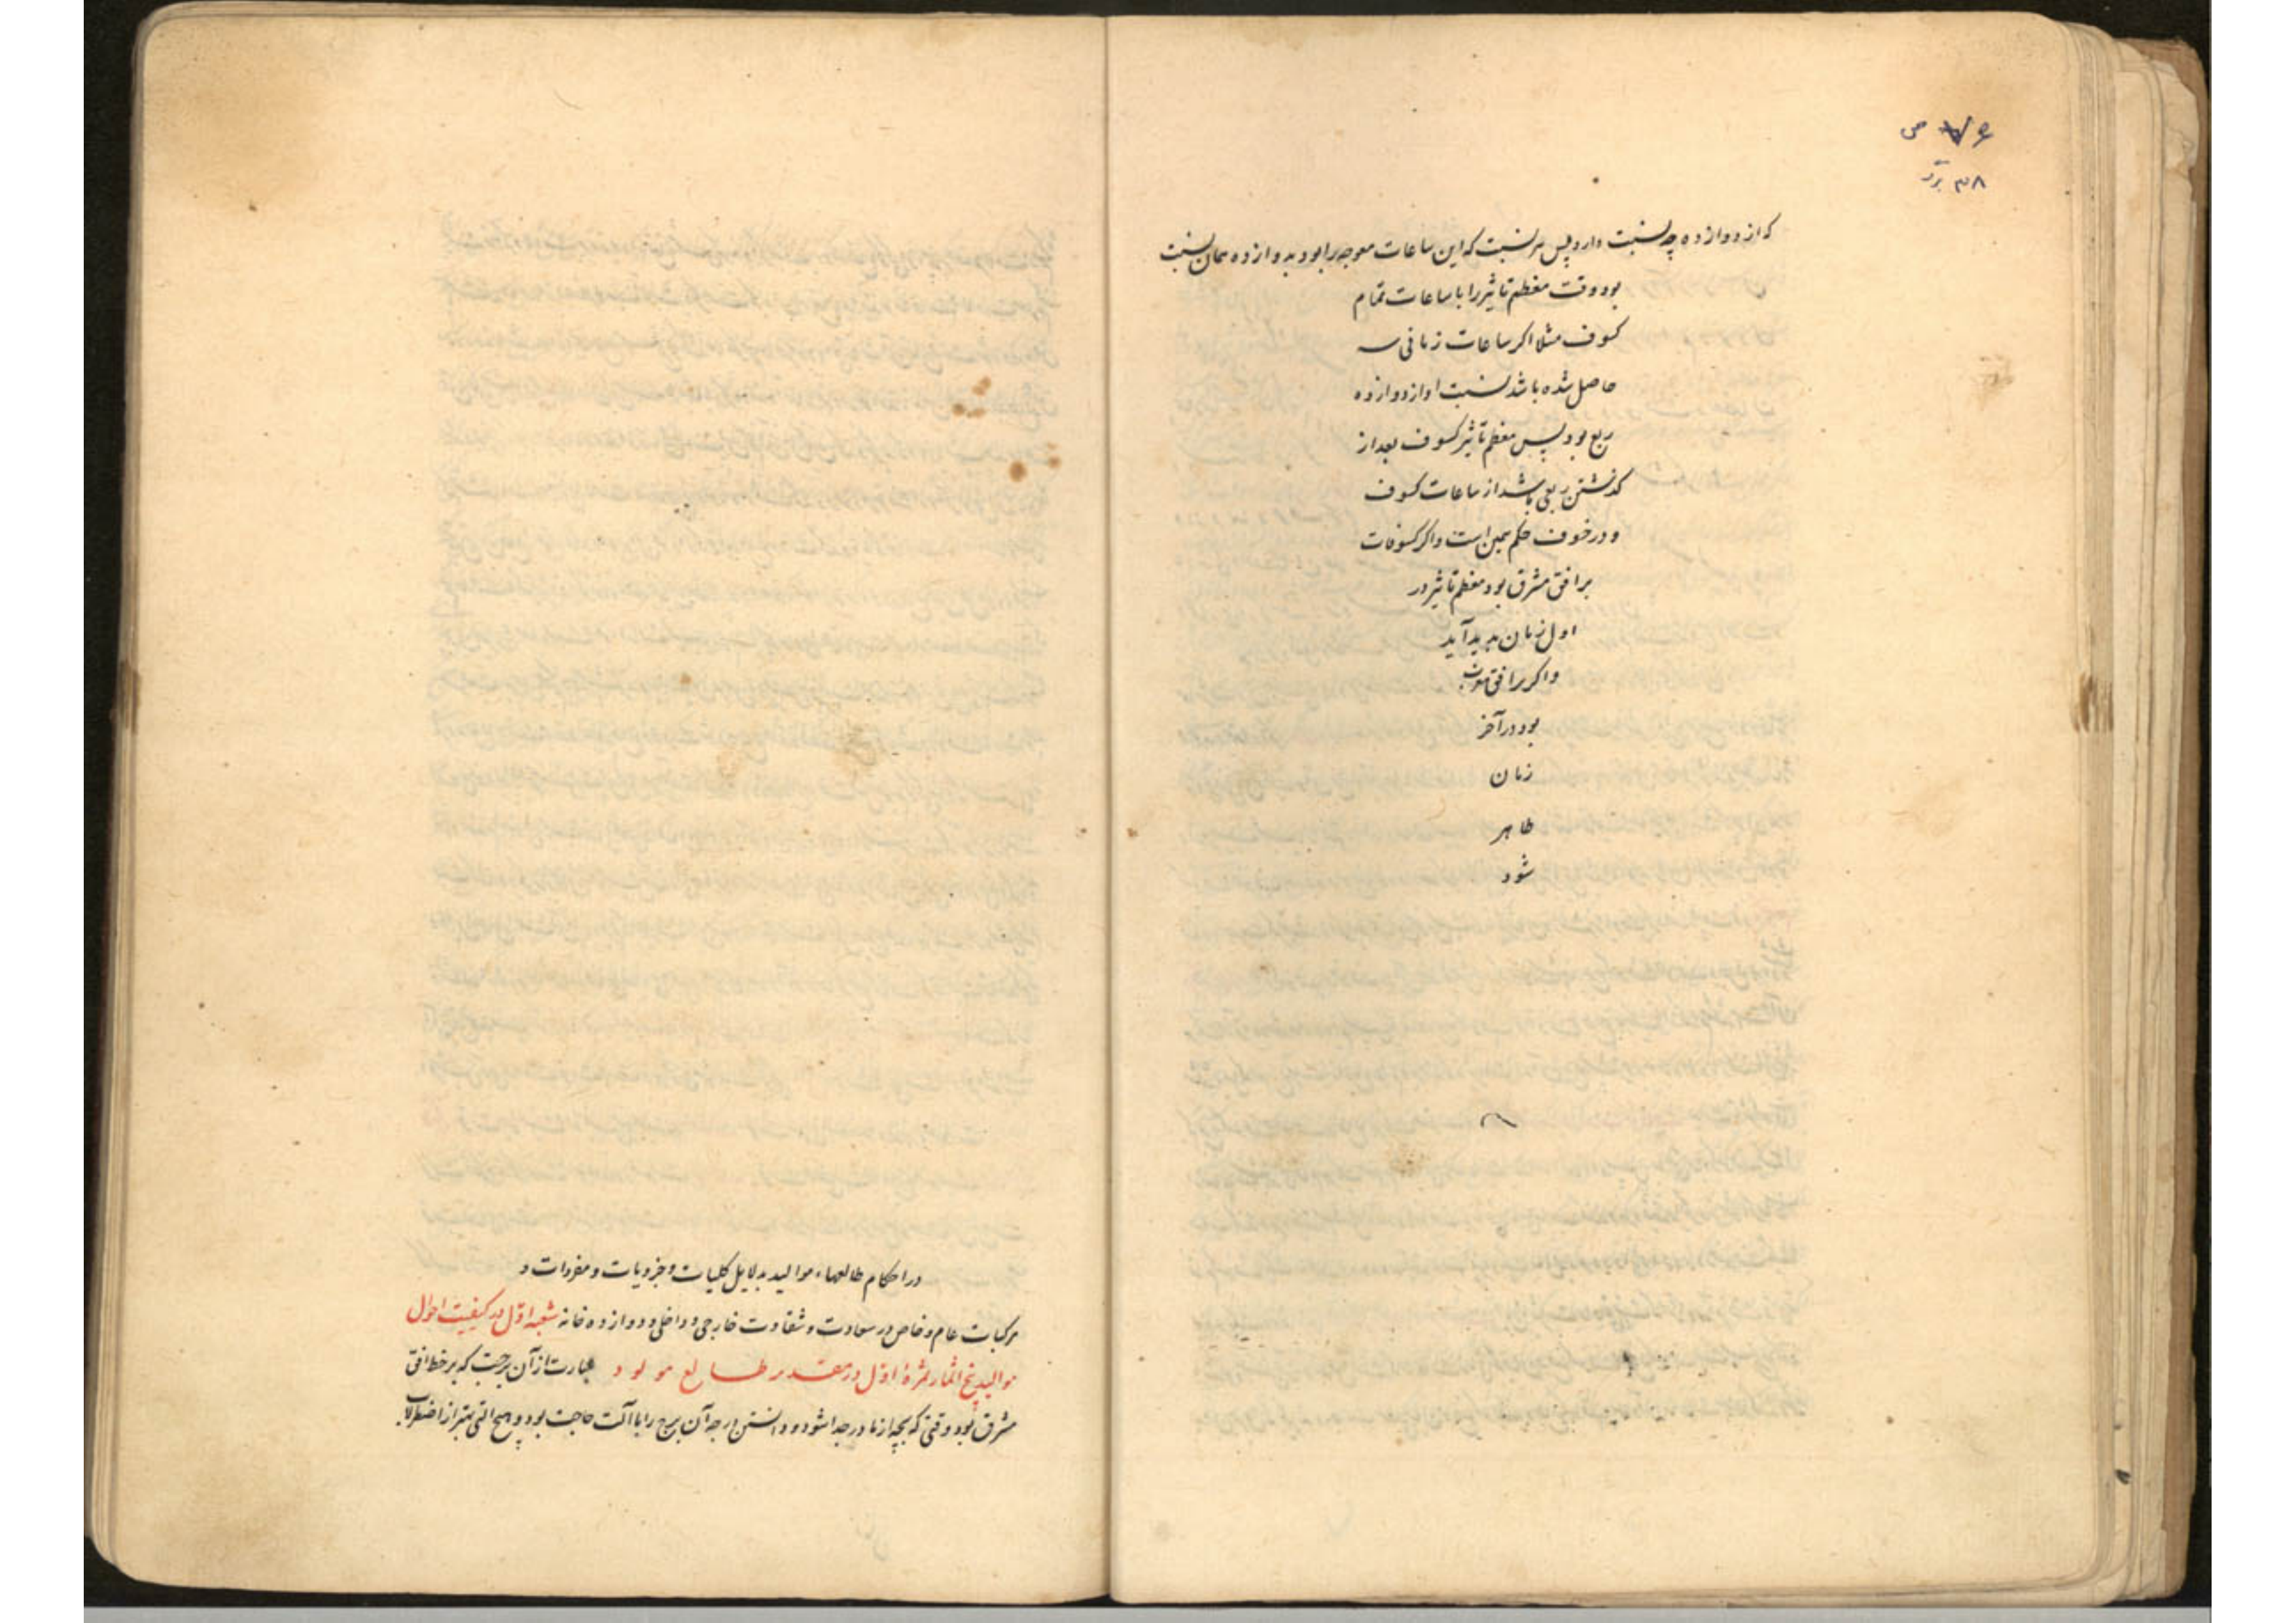 که از دوازده چه نسبت دارد پس هر نسبت که این ساعات معوجه را بود بدوازده همان نسبت
بود وقت معظم تاثیر را با ساعات تمام
کسوف مثلا اکر ساعات زمانی سه
حاصل شده باشد نسبت او از دوازده
ربع بود پس معظم تاثیر کسوف بعد از
کذشتن ربعی باشد از ساعات کسوف
و در خسوف حکم همین است و اکر کسوفات
بر افق مشرق بود معظم تاثیر در
اول زمان پدید آید
و اکر بر افق مغرب
بود در آخر
زمان
ظاهر
شود
در احکام طالعهاء موالید بدلایل کلیات و جزویات و مفردات و
مرکبات عام و خاص در سعادت و شقاوت خارجی و داخلی و دوازده خانه شعبه اول در کیفیت احوال
موالید پنج اثمار ثمرۀ اول در معتدیر طالع مولود عبارت از آن برجست که بر خط افق
مشرق بود وقتی که بچه از مادر جدا شود و دانستن درجه آن برج را باآلت حاجت بود و هیچ آلتی بهتر از اضطرلاب